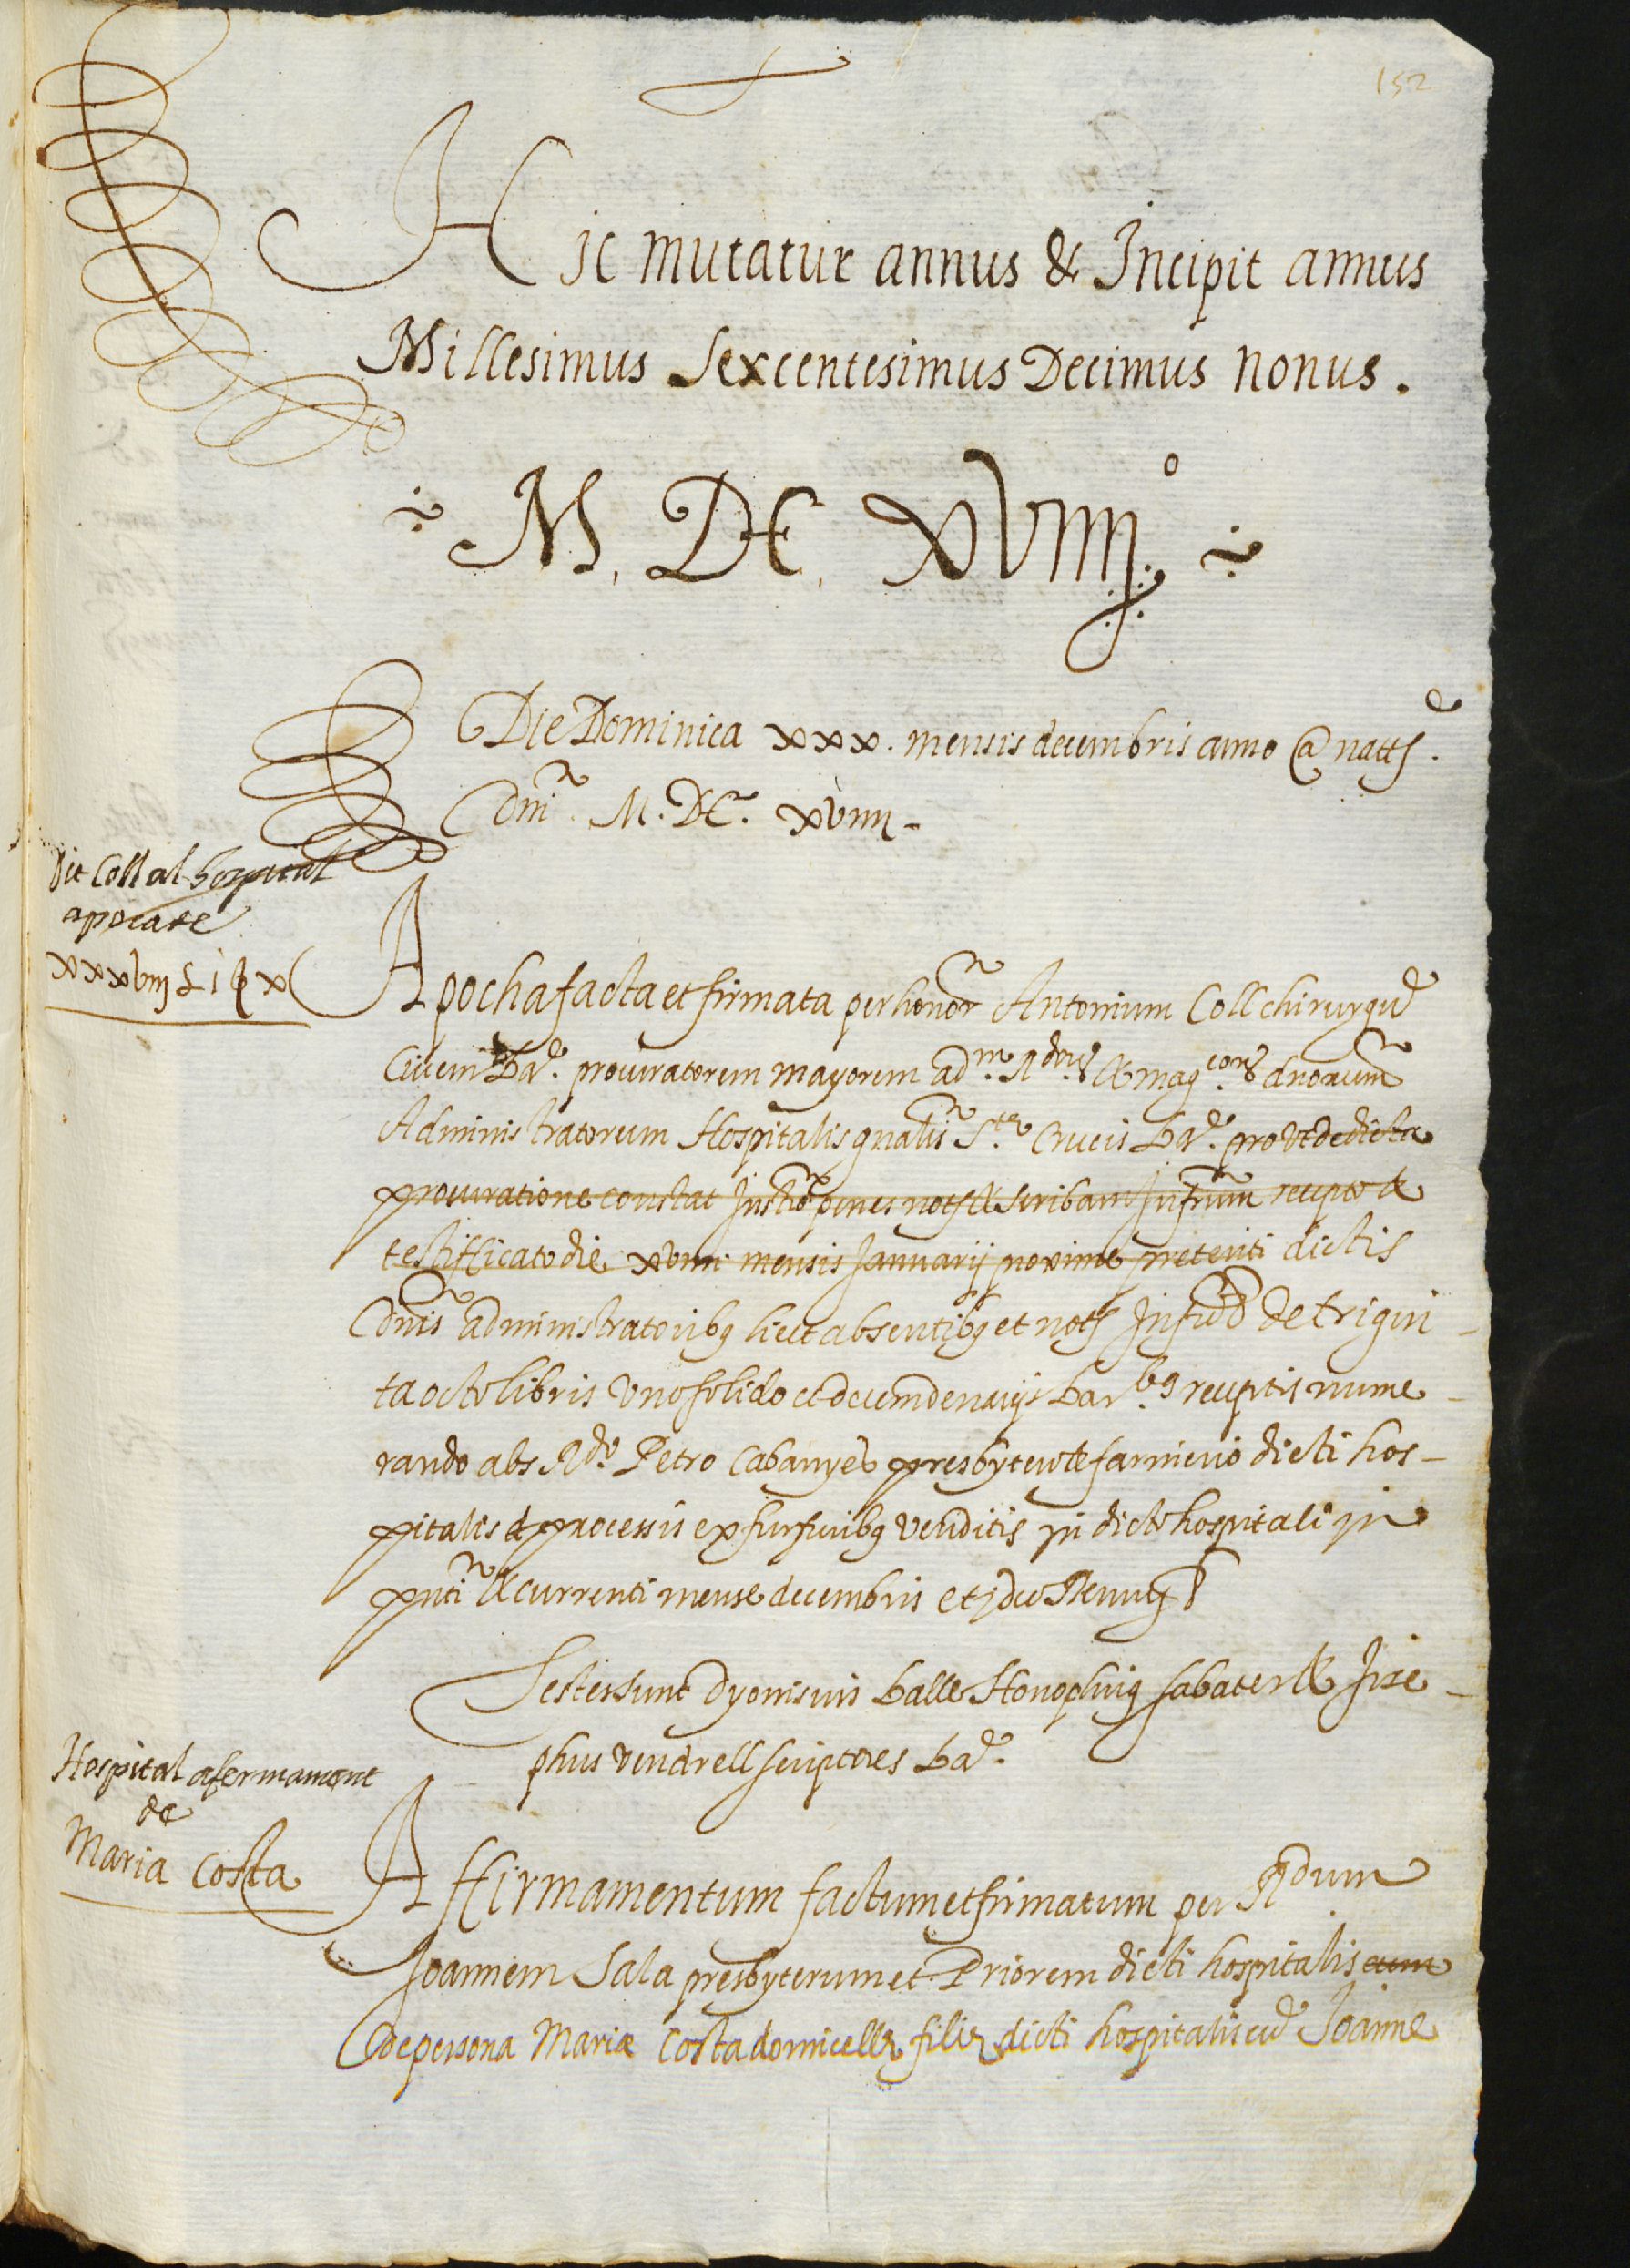 152
Hic mutatur annus & Incipit annus
Millesimus Sexcentesimus Decimus nonus.
M. DC. XVIIIJ.º
Die Dominica xxx. mensis decembris anno @ natte.
Dni. M. DC. xviiij
Dit Coll al hospital
apocase
xxxviij £ i ß x
Apocha facta et firmata per honor Antonium Coll chirurgu
Civem Ba. procuratorem mayorem adm. Rdorũ & magcorũ dnorum
Administratorum Hospitalis gnalis Ste Crucis Ba. pro ut de dicta
procuratione constat Instro penes nots & scribam Infrum recepto &
testifficato die xviiii mensis Januarij proxime preteriti dictis
Dnis administratoribus licet absentibus et nots Infro de trigin-
ta octo libris uno solido et decem denarijs Barbus receptis nume-
rando abs Rdo. Petro Cabanyes presbytero & farinerio dicti hos-
pitalis & processis ex furfuribus venditis in dicto hospitali in
pnti & currenti mense decembris et ideo Renung
Testes sunt Dyonisius Balle Honophrius Sabater & Jose-
phus Vendrell scriptores Ba.
Hospital afermament
de
Maria Costa
Affirmamentum factum et firmatum per Rdum
Joannem Sala presbyterum et Priorem dicti hospitalis cum
de persona Mariæ Costa domicellę filię dicti hospitalis cũ Joanne